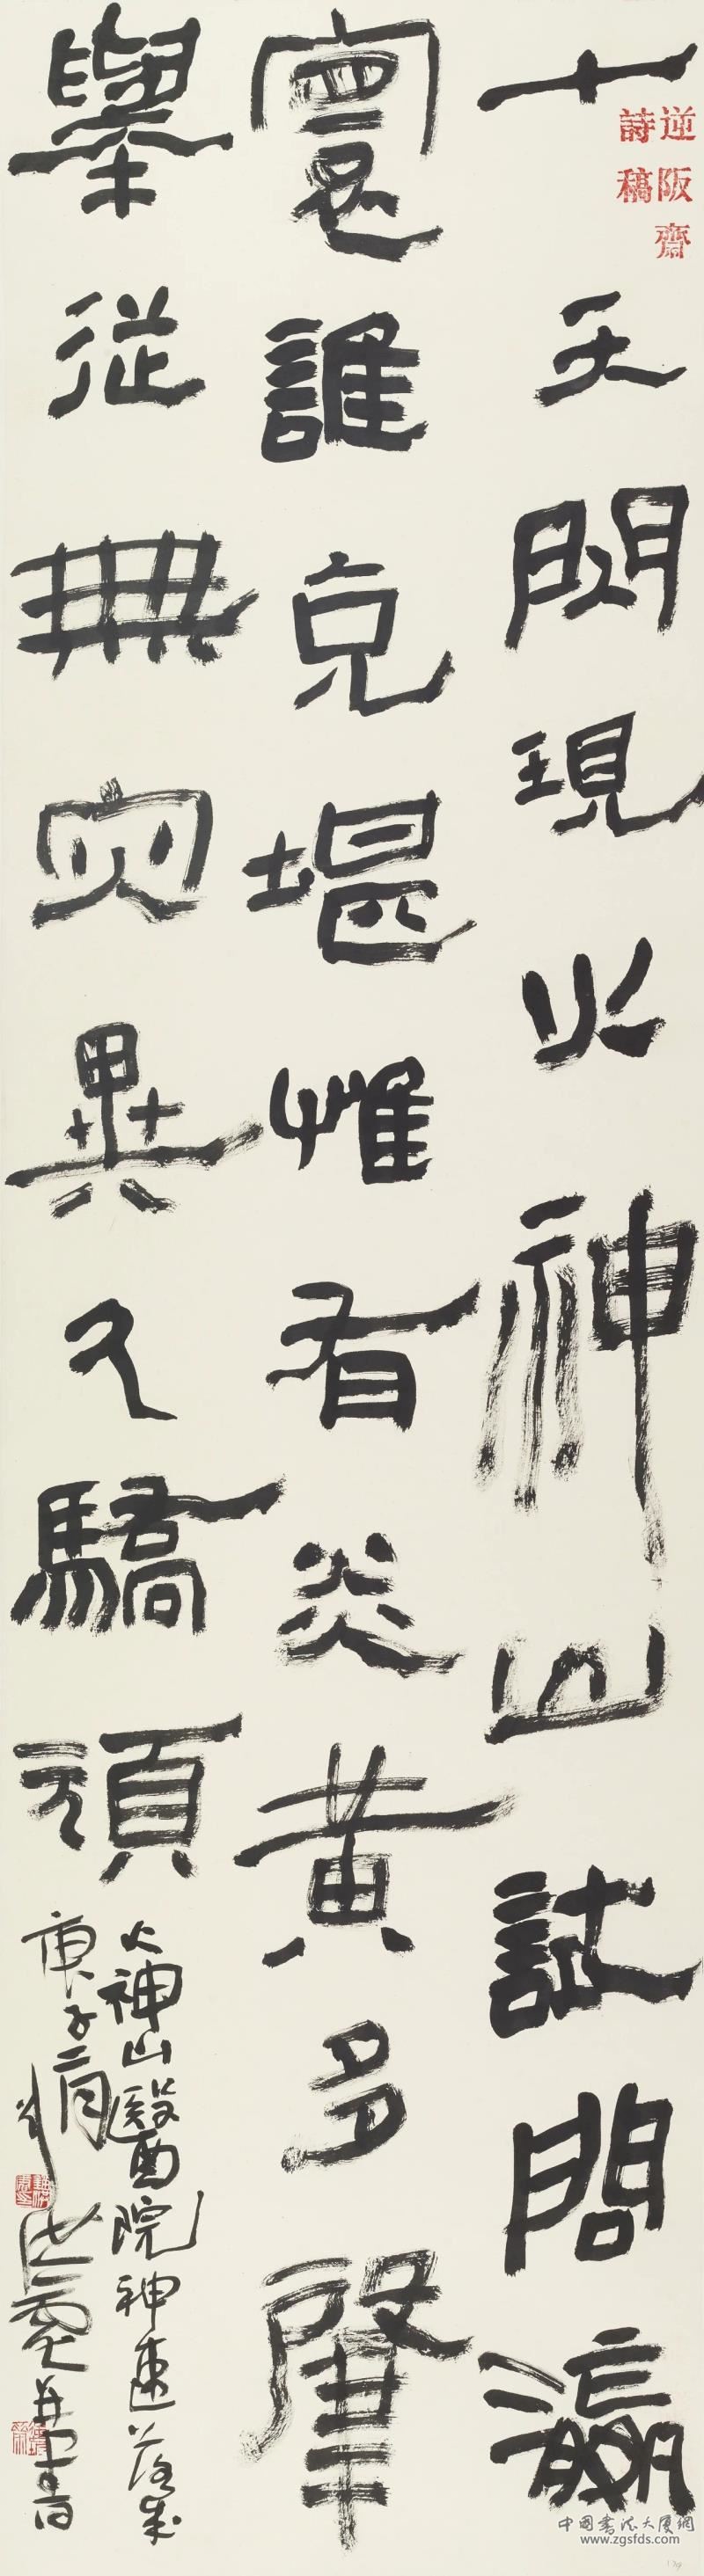 逆阪齋
詩稿
十天閃現火神山試問瀛
寰誰克堪惟有炎黃多肇
舉從無灾異久驕頑
火神山醫院神速落成
庚子二月 并書
中國書法大廈網
www.zgsfds.com